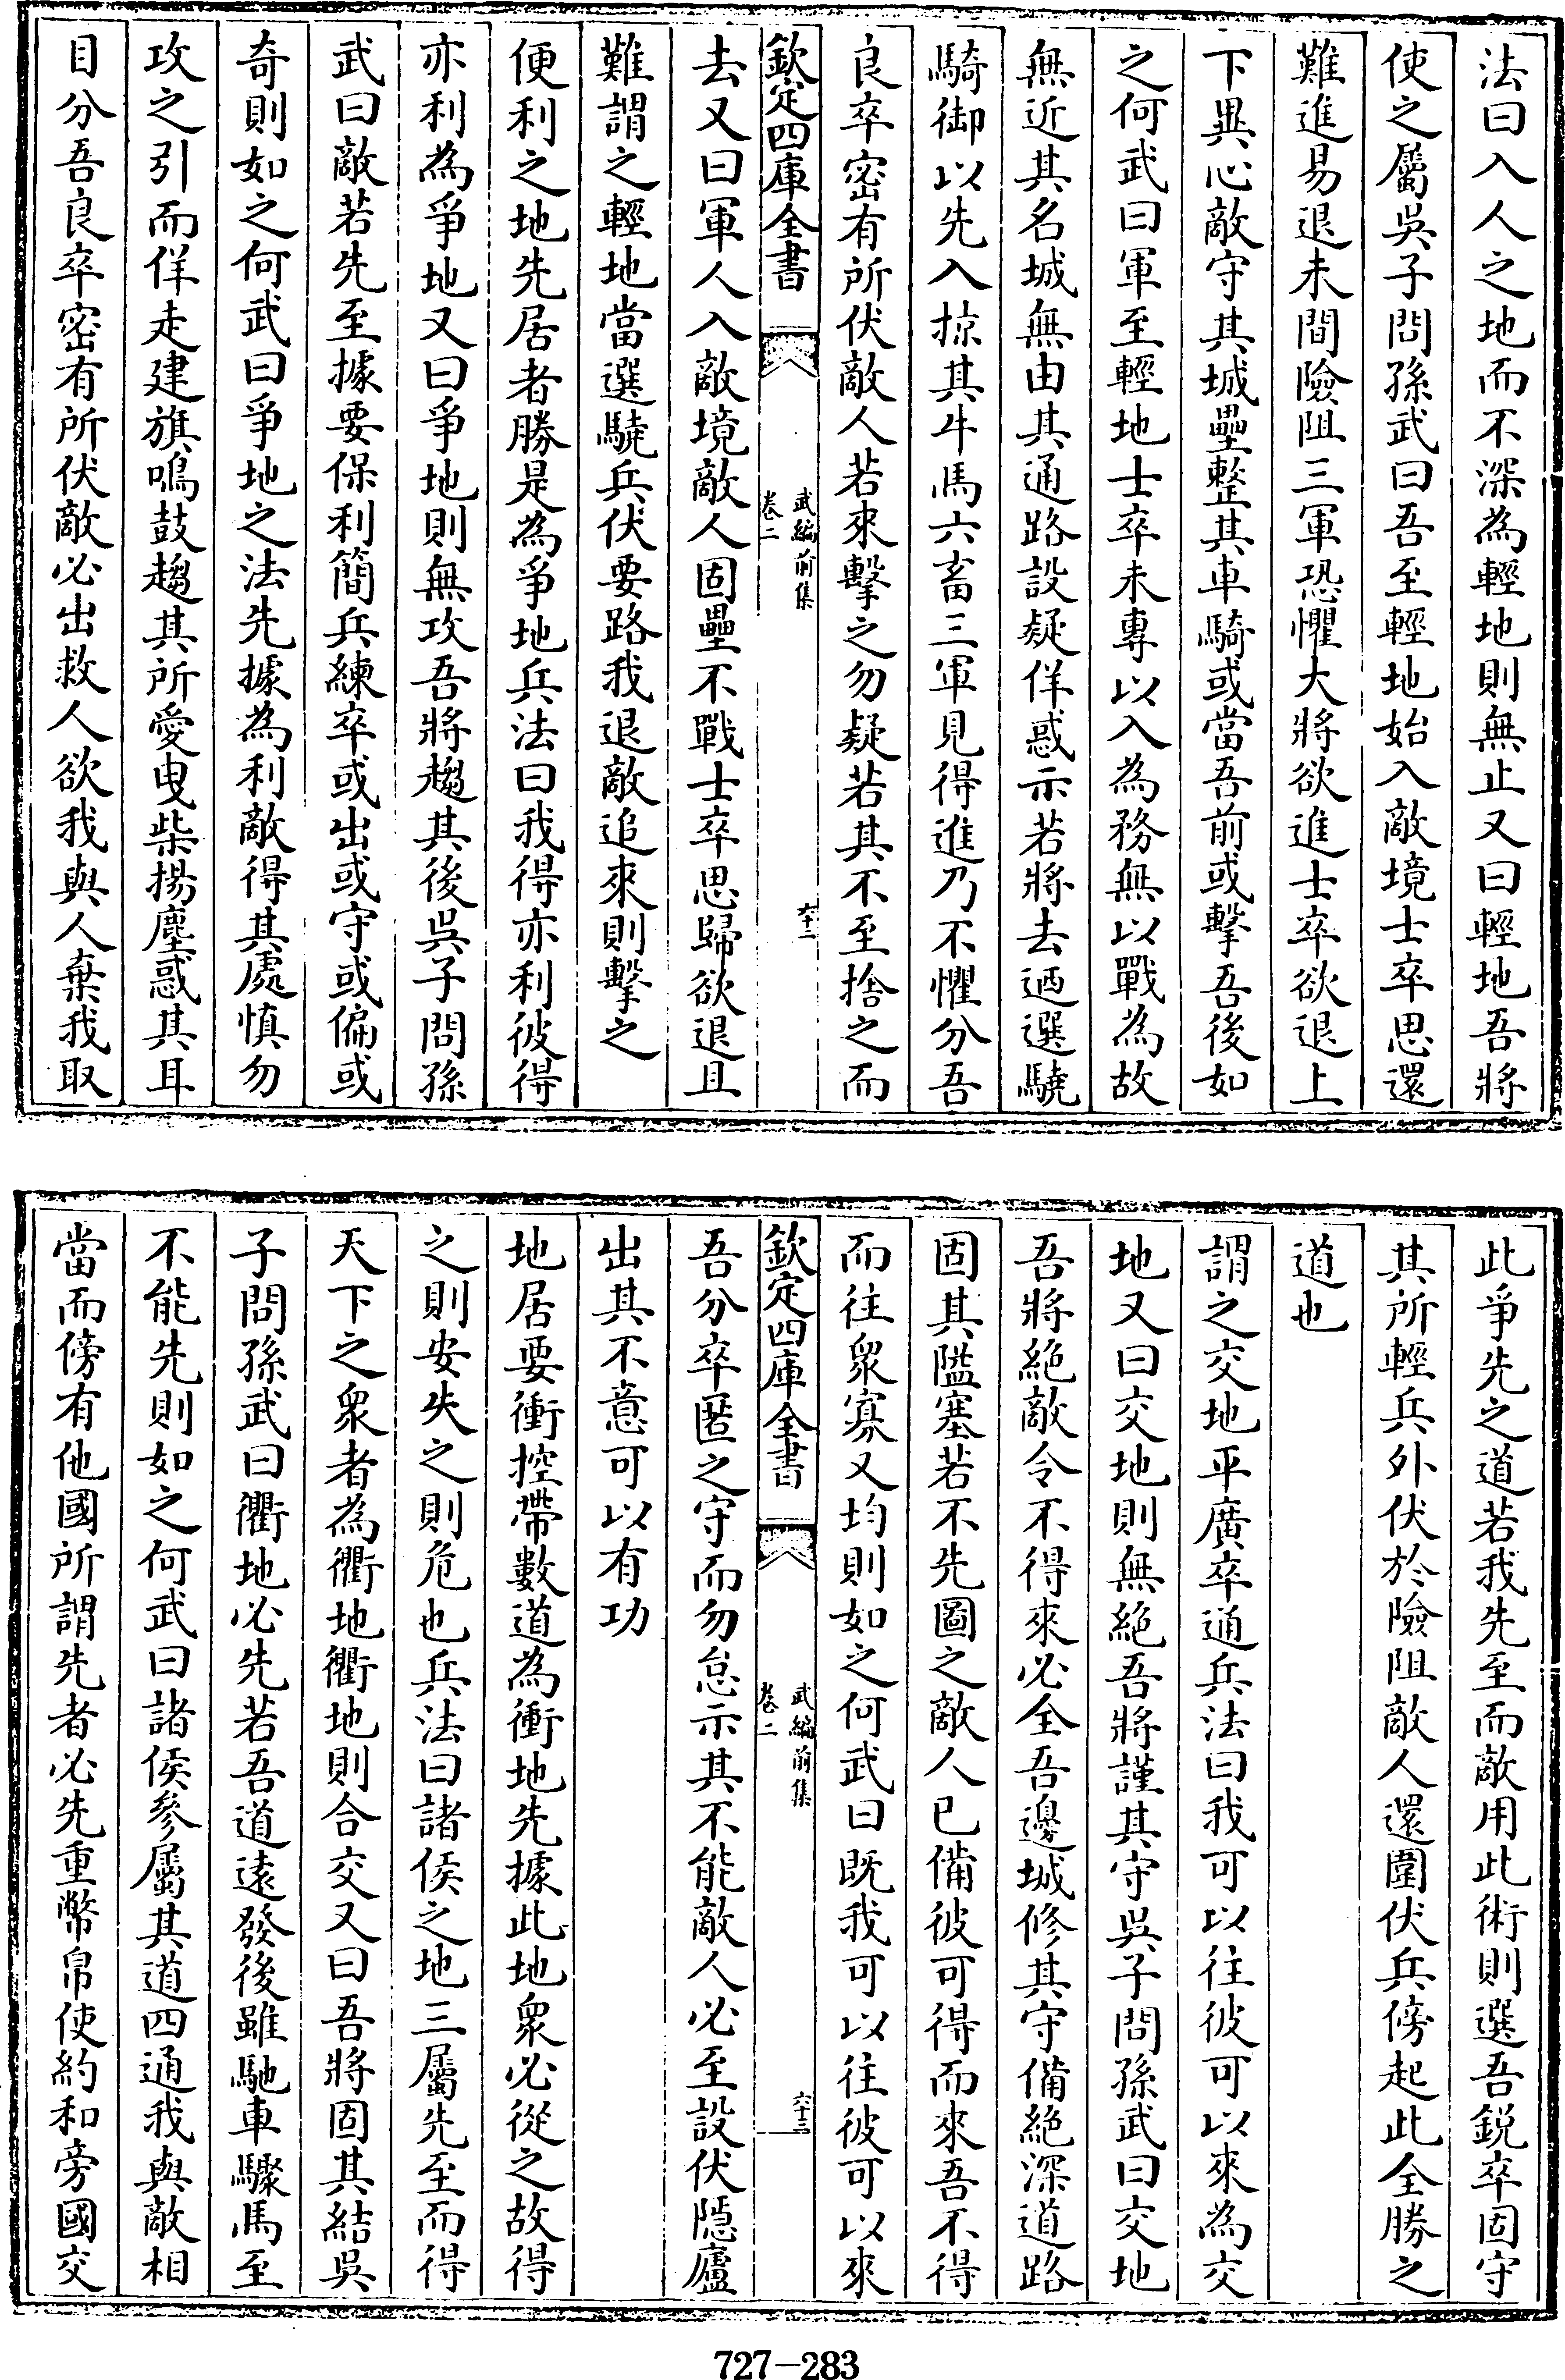 法曰入人之地而不深為輕地則無止又曰輕地吾將
使之屬吳子問孫武曰吾至輕地始入敵境士卒思還
難進易退未間險阻三軍恐懼大將欲進士卒欲退上
下異心敵守其城壘整其車騎或當吾前或擊吾後如
之何武曰軍至輕地士卒未專以入為務無以戰為故
無近其名城無由其通路設疑佯惑示若將去迺選驍
騎御以先入掠其牛馬六畜三軍見得進乃不懼分吾
良卒密有所伏敵人若來擊之勿疑若其不至捨之而
欽定四庫全書
武編前集
卷二
六十二
去又曰軍人入敵境敵人固壘不戰士卒思歸欲退且
難謂之輕地當選驍兵伏要路我退敵追來則擊之
便利之地先居者勝是為爭地兵法曰我得亦利彼得
亦利為爭地又曰爭地則無攻吾將趨其後吳子問孫
武曰敵若先至據要保利簡兵練卒或出或守或偏或
奇則如之何武曰爭地之法先據為利敵得其處慎勿
攻之引而佯走建旗鳴鼓趨其所愛曳柴揚塵惑其耳
目分吾良卒密有所伏敵必出救人欲我與人棄我取
此爭先之道若我先至而敵用此術則選吾銳卒固守
其所輕兵外伏於險阻敵人還圍伏兵傍起此全勝之
道也
謂之交地平廣卒通兵法曰我可以往彼可以來為交
地又曰交地則無絕吾將謹其守吳子問孫武曰交地
吾將絕敵令不得來必全吾邊城修其守備絕深道路
固其隘塞若不先圖之敵人已備彼可得而來吾不得
而往衆寡又均則如之何武曰既我可以往彼可以來
欽定四庫全書
武編前集
卷二
六十三
吾分卒匿之守而勿怠示其不能敵人必至設伏隱廬
出其不意可以有功
地居要衝控帶數道為衝地先據此地衆必從之故得
之則安失之則危也兵法曰諸侯之地三屬先至而得
天下之衆者為衢地衢地則合交又曰吾將固其結吳
子問孫武曰衢地必先若吾道遠發後雖馳車驟馬至
不能先則如之何武曰諸侯參屬其道四通我與敵相
當而傍有他國所謂先者必先重幣帛使約和旁國交
727-283